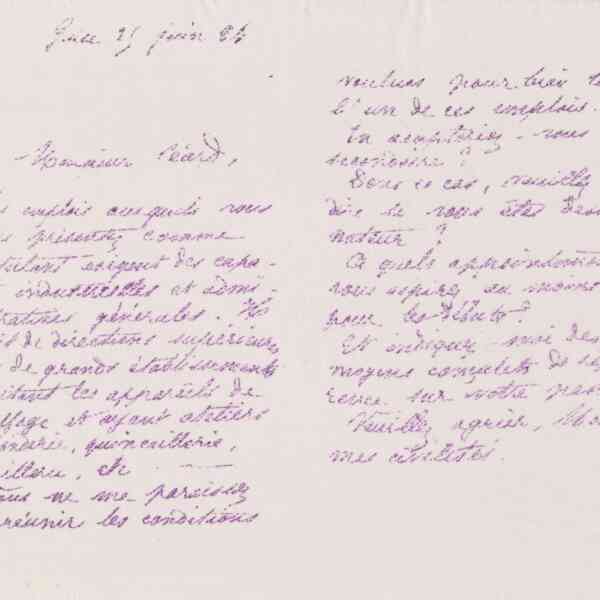 Guise 25 juin 84
Monsieur Céard,
emplois auxquels vous
présentez comme
postulant exigent des capa-
industrielles et admi-
tratives générales.
de directions supérieures
de grands établissements
les apparels de
ffage et ayant ateliers
quincaillerie,
etc
ous ne me paraissez
réunir les conditions
voulues pour bien
l'un de ces emplois.
En accepteriez-vous
secondaire ?
Dans ce cas, veuillez
dire si vous êtes dessi
nateur ?
A quels appointements
vous au moins
pour les débuts ?
Et indiquez-moi des
moyens complets de
rence sur votre
Veuillez agréer,
mes civilités.